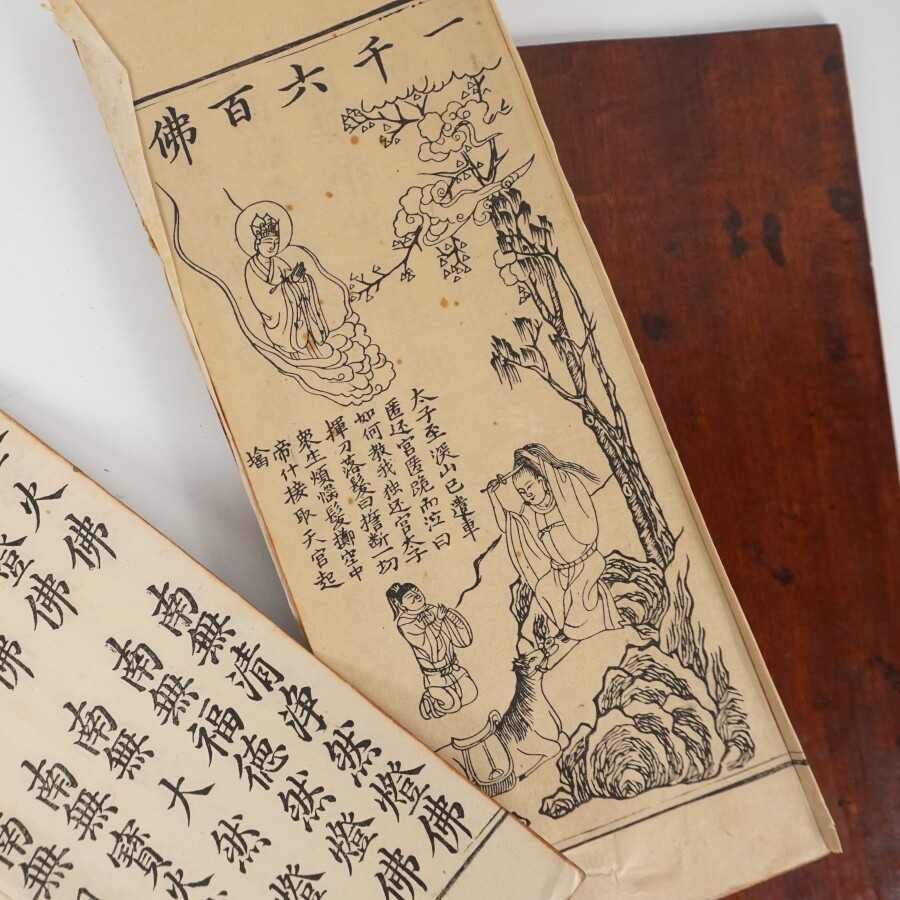 一千六百佛
太子至深山已遣車
匿还宮匿跪而泣曰
如何教我独还宮太子
揮刀落髮曰擔断一切
衆生煩惱髮擲空中
帝什接取天宮起
墖
火佛
佛
佛
南無清淨然燈佛
南無福德然燈佛
南無大然燈
南無寶火
南無